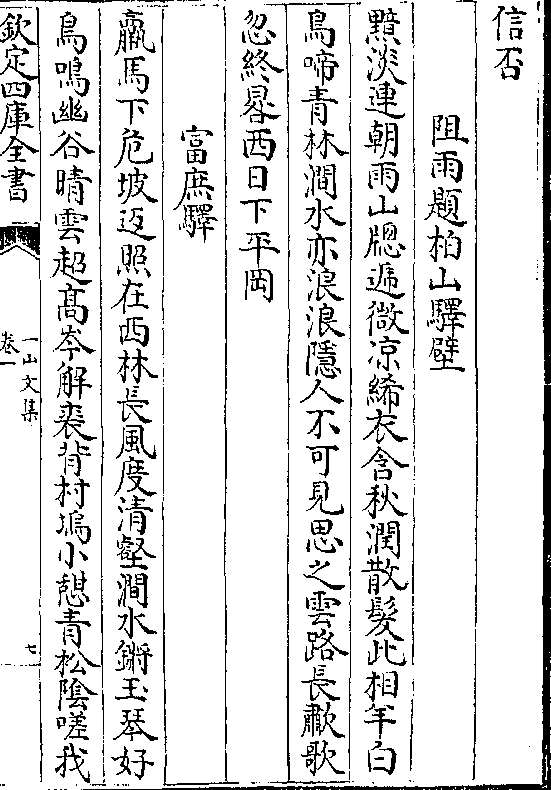 信否
阻雨題柏山驛壁
黯淡連朝雨山牕遞微凉絺衣含秋潤散髮此相羊白
鳥啼青林澗水亦浪浪隱人不可見思之雲路長歗歌
忽終晷西日下平岡
富庶驛
羸馬下危坡返照在西林長風度清壑澗水鏘玉琴好
鳥鳴幽谷晴雲超髙岑解裘背村塢小憇青松陰嗟我
欽定四庫全書
一山文集
卷一
七